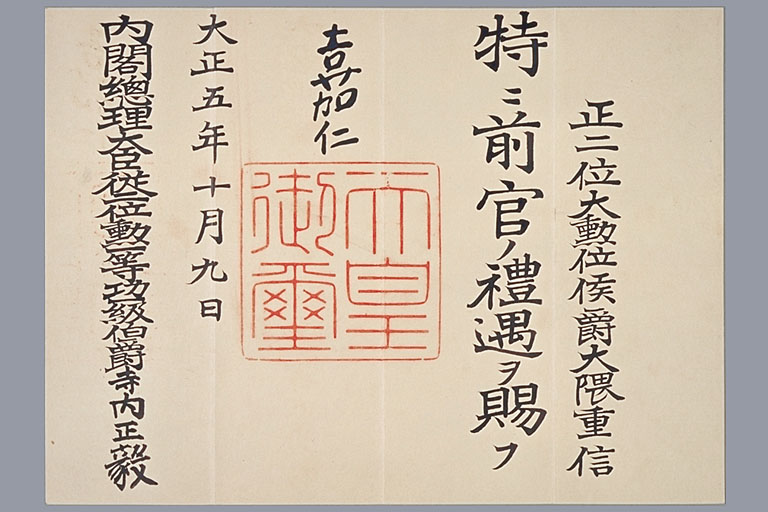 正二位大勳位侯爵大隈重信
特ニ前官ノ禮遇ヲ賜フ
嘉仁
天皇御璽
大正五年十月九日
內閣總理大臣從二位勳一等功一級伯爵寺內正毅